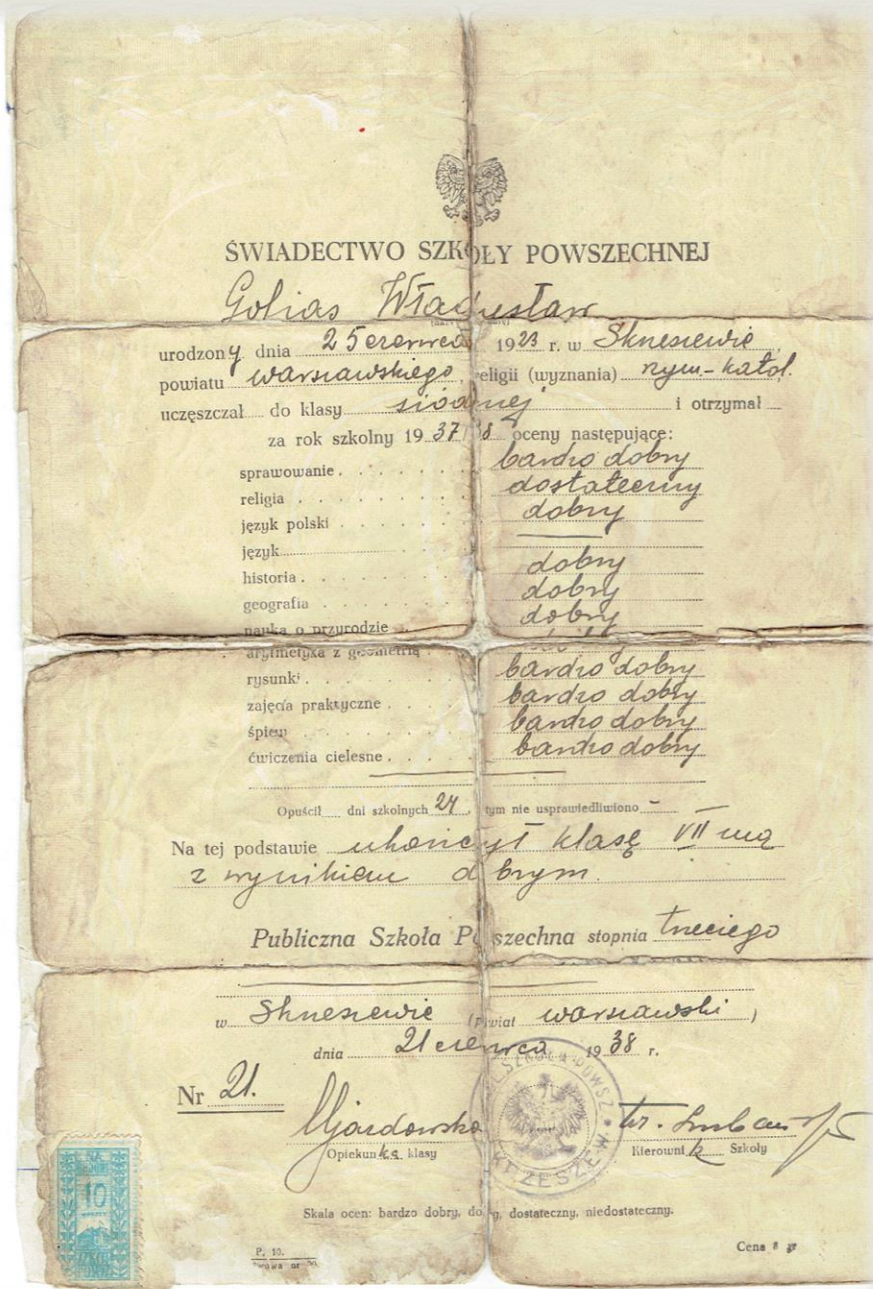 ŚWIADECTWO SZKOŁY POWSZECHNEJ
Golias Władysław
urodzony dnia 25 czerwca 1923 r. w Skrzeszewie
powiatu warszawskiego religii (wyznania) rzym-katol.
uczęszczał do klasy siódmej i otrzymał
za rok szkolny 1937/38 oceny następujące:
sprawowanie bardzo dobry
religia dostateczny
język polski dobry
język —
historia dobry
geografia dobry
nauka o przyrodzie dobry
arytmetyka z geometrią
rysunki bardzo dobry
zajęcia praktyczne bardzo dobry
śpiew bardzo dobry
ćwiczenia cielesne bardzo dobry
Opuścił dni szkolnych 24, tym nie usprawiedliwiono —
Na tej podstawie ukończył klasę VII mą
z wynikiem dobrym.
Publiczna Szkoła Powszechna stopnia trzeciego
w Skrzeszewie (powiat warszawski)
dnia 21 czerwca 1938 r.
Nr 21.
Opiekunka klasy
Kierownik Szkoły
10
Skala ocen: bardzo dobry, dobry, dostateczny, niedostateczny.
P. 10.
Cena 5 gr